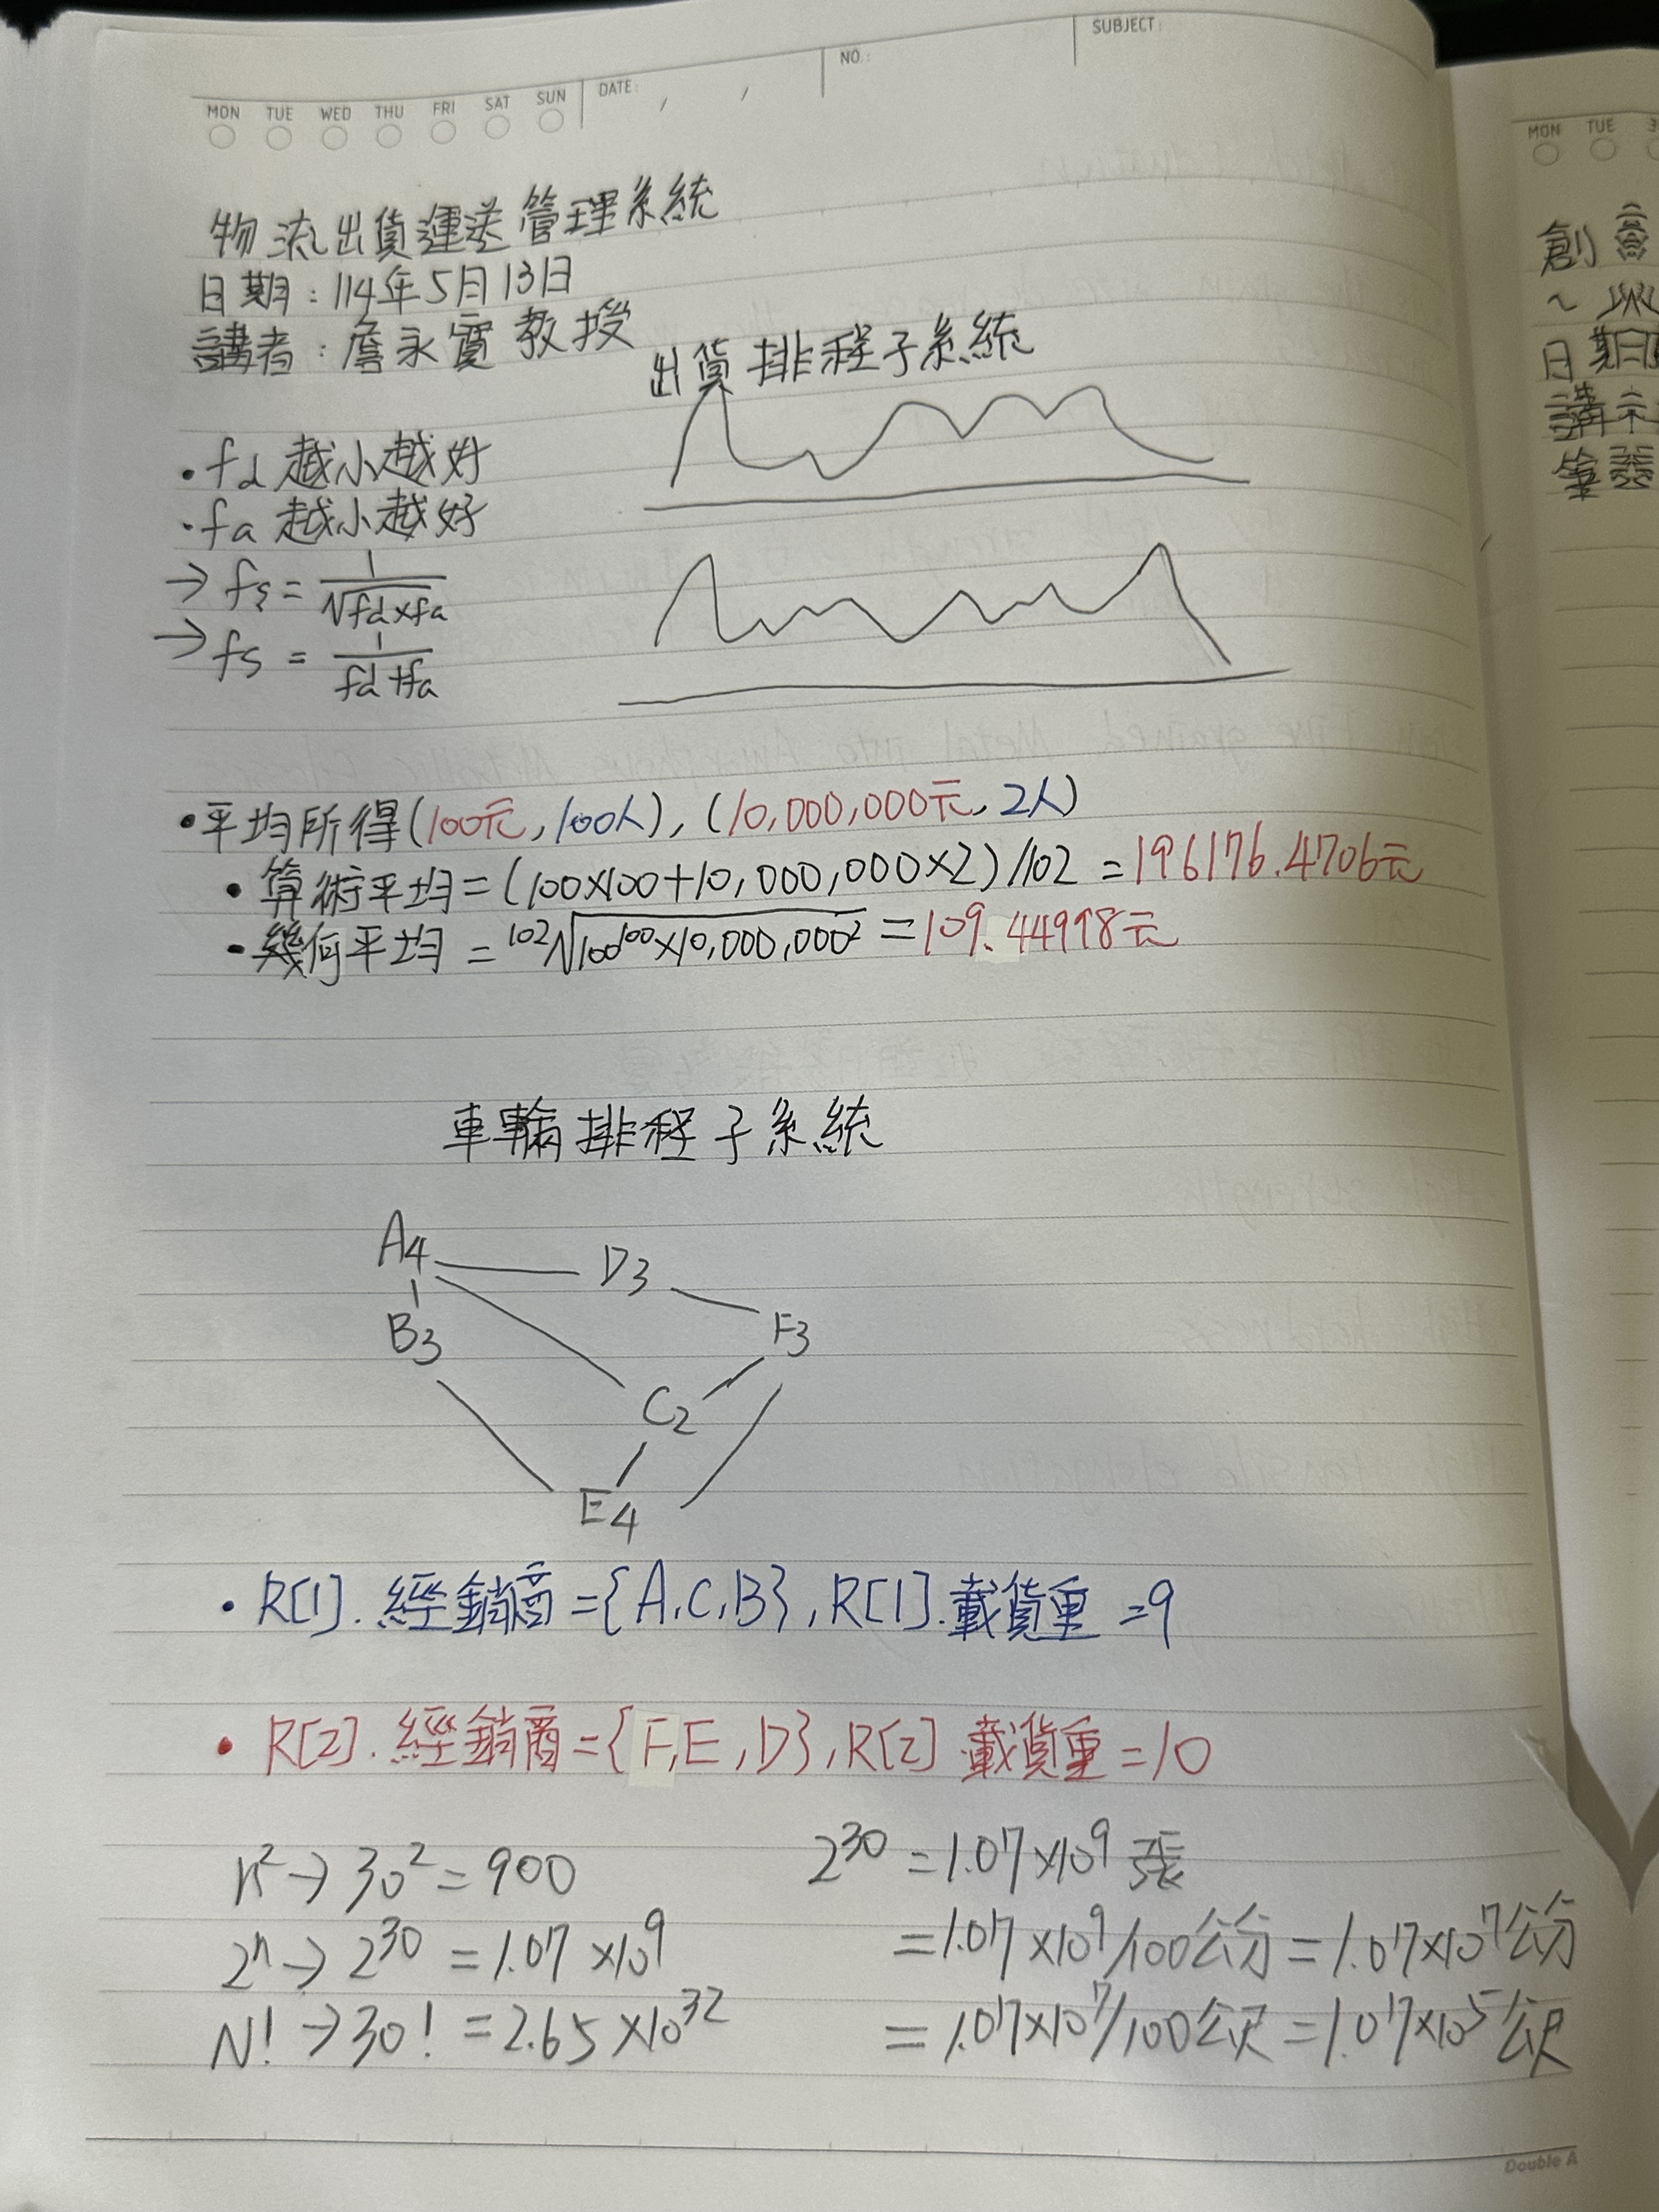 MON TUE WED THU FRI SAT SUN DATE: / / NO.: SUBJECT:
物流出貨運送管理系統
日期：114年5月13日
講者：詹永寬教授
出貨排程子系統
•fd 越小越好
•fa 越小越好
→ fs = 1/√fd×fa
→ fs = 1/fd+fa
•平均所得(100元,100人), (10,000,000元, 2人)
•算術平均=(100×100+10,000,000×2)/102 =196176.4706元
•幾何平均 = 102√100^100×10,000,000^2 =109.44998元
車輛排程子系統
A4
D3
B3
F3
C2
E4
•R[1].經銷商={A,C,B}, R[1].載貨重=9
•R[2].經銷商={F,E,D}, R[2]載貨重=10
n²→30²=900
2^n→2^30=1.07×10^9
N!→30!=2.65×10^32
2^30=1.07×10^9張
=1.07×10^9/100公分=1.07×10^7公分
=1.07×10^7/100公尺=1.07×10^5公尺
Double A
MON TUE
創意
~
日期
講
筆